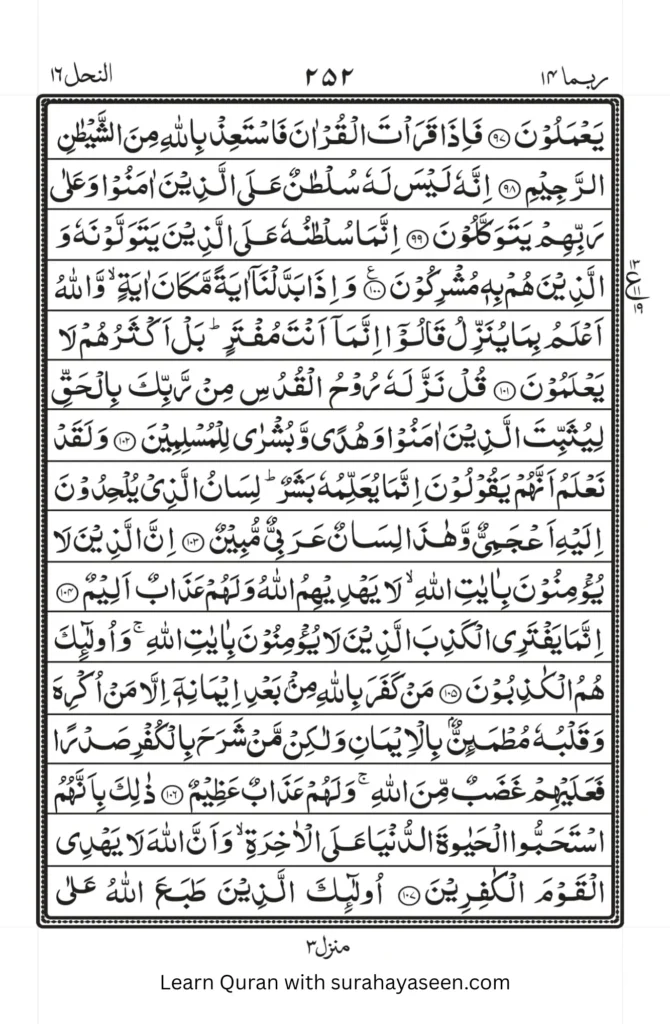 ربما ١٤ ٢٥٢ النحل ١٦
يَعْمَلُوْنَ ﴿٩٧﴾ فَاِذَا قَرَاْتَ الْقُرْاٰنَ فَاسْتَعِذْ بِاللّٰهِ مِنَ الشَّيْطٰنِ
الرَّجِيْمِ ﴿٩٨﴾ اِنَّهٗ لَيْسَ لَهٗ سُلْطٰنٌ عَلَى الَّذِيْنَ اٰمَنُوْا وَعَلٰى
رَبِّهِمْ يَتَوَكَّلُوْنَ ﴿٩٩﴾ اِنَّمَا سُلْطٰنُهٗ عَلَى الَّذِيْنَ يَتَوَلَّوْنَهٗ وَ
الَّذِيْنَ هُمْ بِهٖ مُشْرِكُوْنَ ﴿١٠٠﴾ ع وَاِذَا بَدَّلْنَاۤ اٰيَةً مَّكَانَ اٰيَةٍ ۙ وَّاللّٰهُ
١٣
ع ١١
١٩
اَعْلَمُ بِمَا يُنَزِّلُ قَالُوْۤا اِنَّمَاۤ اَنْتَ مُفْتَرٍ ؕ بَلْ اَكْثَرُهُمْ لَا
يَعْلَمُوْنَ ﴿١٠١﴾ قُلْ نَزَّلَهٗ رُوْحُ الْقُدُسِ مِنْ رَّبِّكَ بِالْحَقِّ
لِيُثَبِّتَ الَّذِيْنَ اٰمَنُوْا وَهُدًى وَّبُشْرٰى لِلْمُسْلِمِيْنَ ﴿١٠٢﴾ وَلَقَدْ
نَعْلَمُ اَنَّهُمْ يَقُوْلُوْنَ اِنَّمَا يُعَلِّمُهٗ بَشَرٌ ؕ لِسَانُ الَّذِيْ يُلْحِدُوْنَ
اِلَيْهِ اَعْجَمِيٌّ وَّهٰذَا لِسَانٌ عَرَبِيٌّ مُّبِيْنٌ ﴿١٠٣﴾ اِنَّ الَّذِيْنَ لَا
يُؤْمِنُوْنَ بِاٰيٰتِ اللّٰهِ ۙ لَا يَهْدِيْهِمُ اللّٰهُ وَلَهُمْ عَذَابٌ اَلِيْمٌ ﴿١٠٤﴾
اِنَّمَا يَفْتَرِى الْكَذِبَ الَّذِيْنَ لَا يُؤْمِنُوْنَ بِاٰيٰتِ اللّٰهِ ۚ وَاُولٰٓئِكَ
هُمُ الْكٰذِبُوْنَ ﴿١٠٥﴾ مَنْ كَفَرَ بِاللّٰهِ مِنْۢ بَعْدِ اِيْمَانِهٖۤ اِلَّا مَنْ اُكْرِهَ
وَقَلْبُهٗ مُطْمَئِنٌّۢ بِالْاِيْمَانِ وَلٰكِنْ مَّنْ شَرَحَ بِالْكُفْرِ صَدْرًا
فَعَلَيْهِمْ غَضَبٌ مِّنَ اللّٰهِ ۚ وَلَهُمْ عَذَابٌ عَظِيْمٌ ﴿١٠٦﴾ ذٰلِكَ بِاَنَّهُمُ
اسْتَحَبُّوا الْحَيٰوةَ الدُّنْيَا عَلَى الْاٰخِرَةِ ۙ وَاَنَّ اللّٰهَ لَا يَهْدِى
الْقَوْمَ الْكٰفِرِيْنَ ﴿١٠٧﴾ اُولٰٓئِكَ الَّذِيْنَ طَبَعَ اللّٰهُ عَلٰى
منزل ٣
Learn Quran with surahayaseen.com